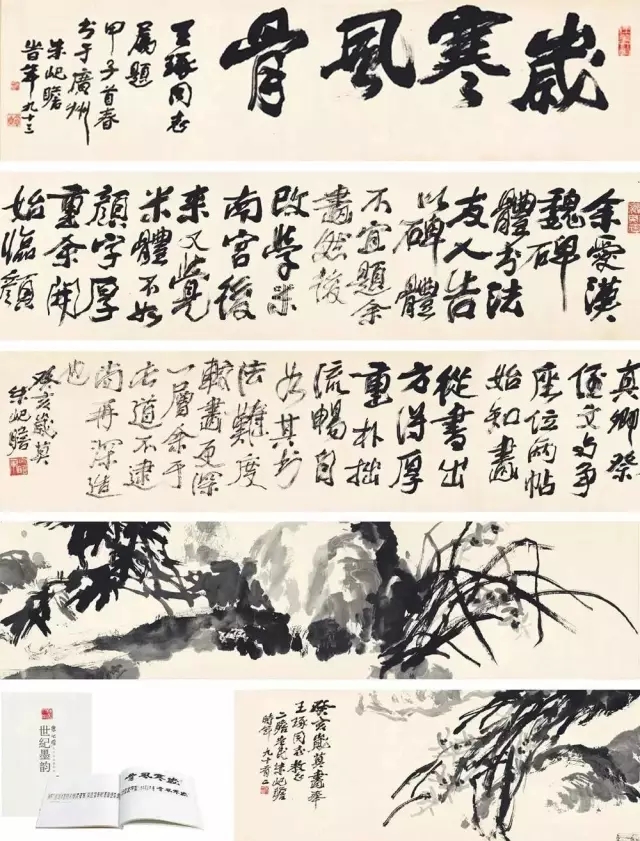 歲寒風骨
王琢同志
屬題
甲子首春
书于廣州
朱屺瞻
旹年九十三
余愛漢
魏碑
體书法
友人告
以碑體
不宜題余
畫然後
改學米
南宮後
来又覺
米體不如
顏字厚
重余開
始臨顏
真卿祭
侄文与争
座位两帖
始知畫
從書出
方得厚
重朴拙
流暢自
如其
法難度
較畫更深
一層余于
此道不逮
尚再深造
也
癸亥歲莫
朱屺瞻
癸亥歲莫畫奉
王琢同志教
二瞻老民朱屺瞻
時年九十有二
世纪墨韵
歲寒風骨